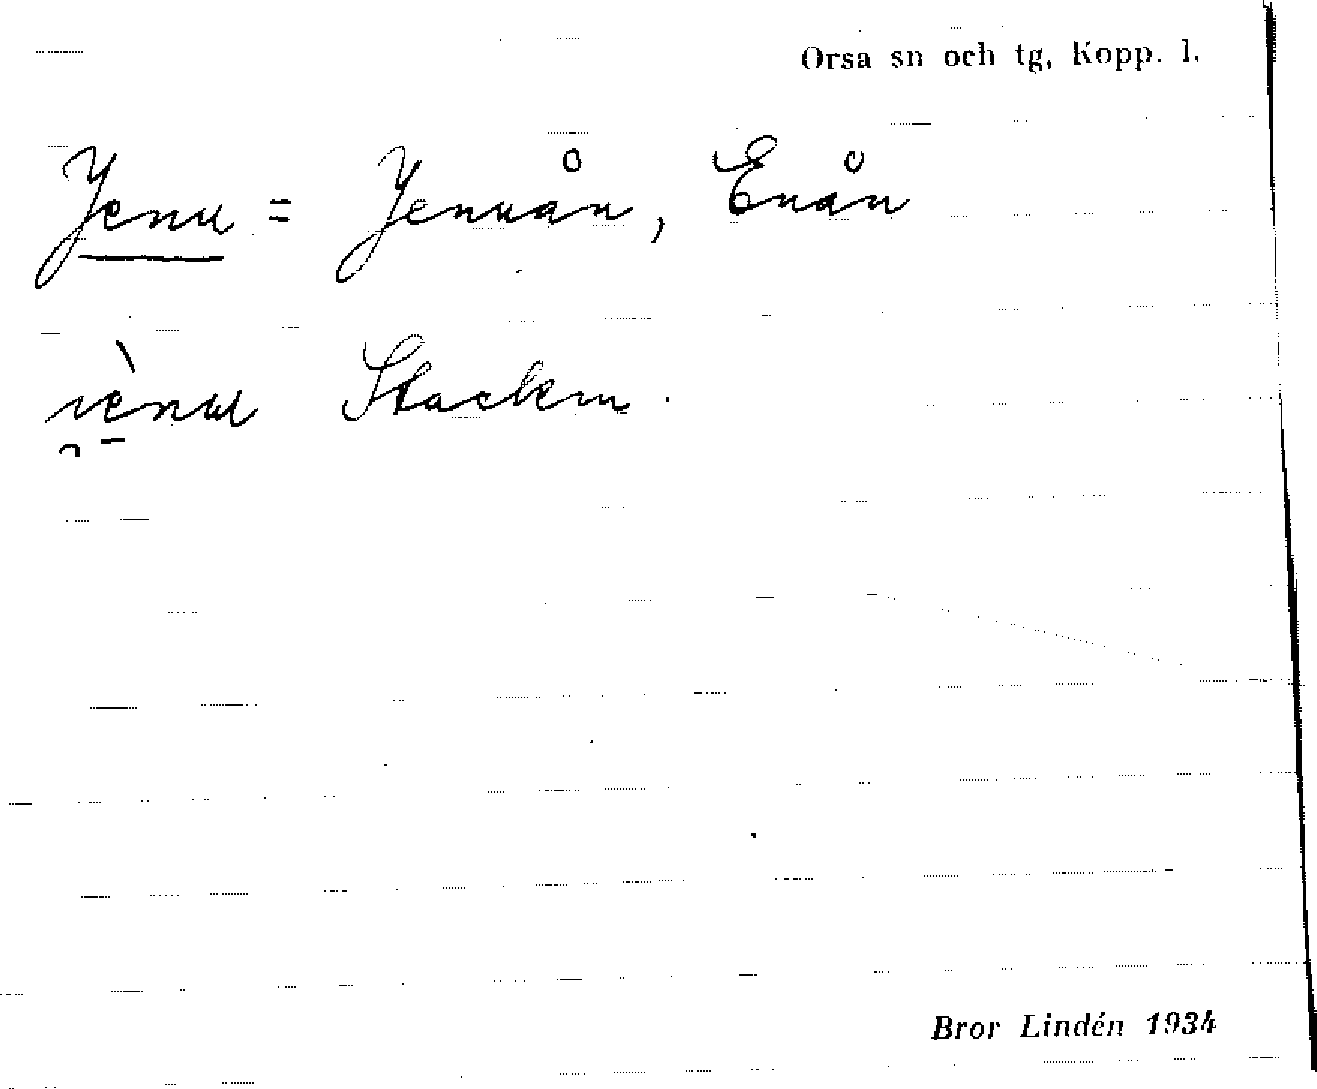 Orsa sn och tg, Kopp. l.
Jenu = Jenuån, Enån
i̯ènu Stackm.
Bror Lindén 1934